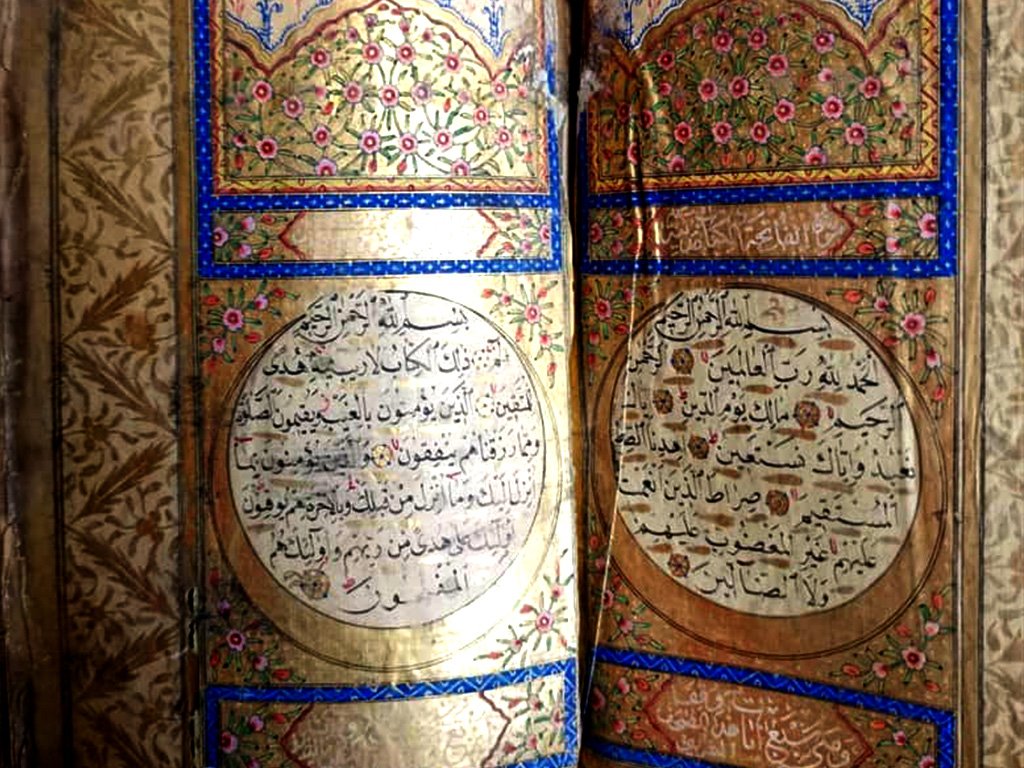 سورة الفاتحة الكتاب
بسم الله الرحمن الرحيم
الحمد لله رب العالمين الرحمن
الرحيم مالك يوم الدين إياك
نعبد وإياك نستعين اهدنا الصراط
المستقيم صراط الذين أنعمت
عليهم غير المغضوب عليهم
ولا الضالين
بسم الله الرحمن الرحيم
الم ذلك الكتاب لا ريب فيه هدى
للمتقين الذين يؤمنون بالغيب ويقيمون الصلوة
ومما رزقناهم ينفقون والذين يؤمنون بما
أنزل إليك وما أنزل من قبلك وبالآخرة هم يوقنون
أولئك على هدى من ربهم وأولئك هم
المفلحون